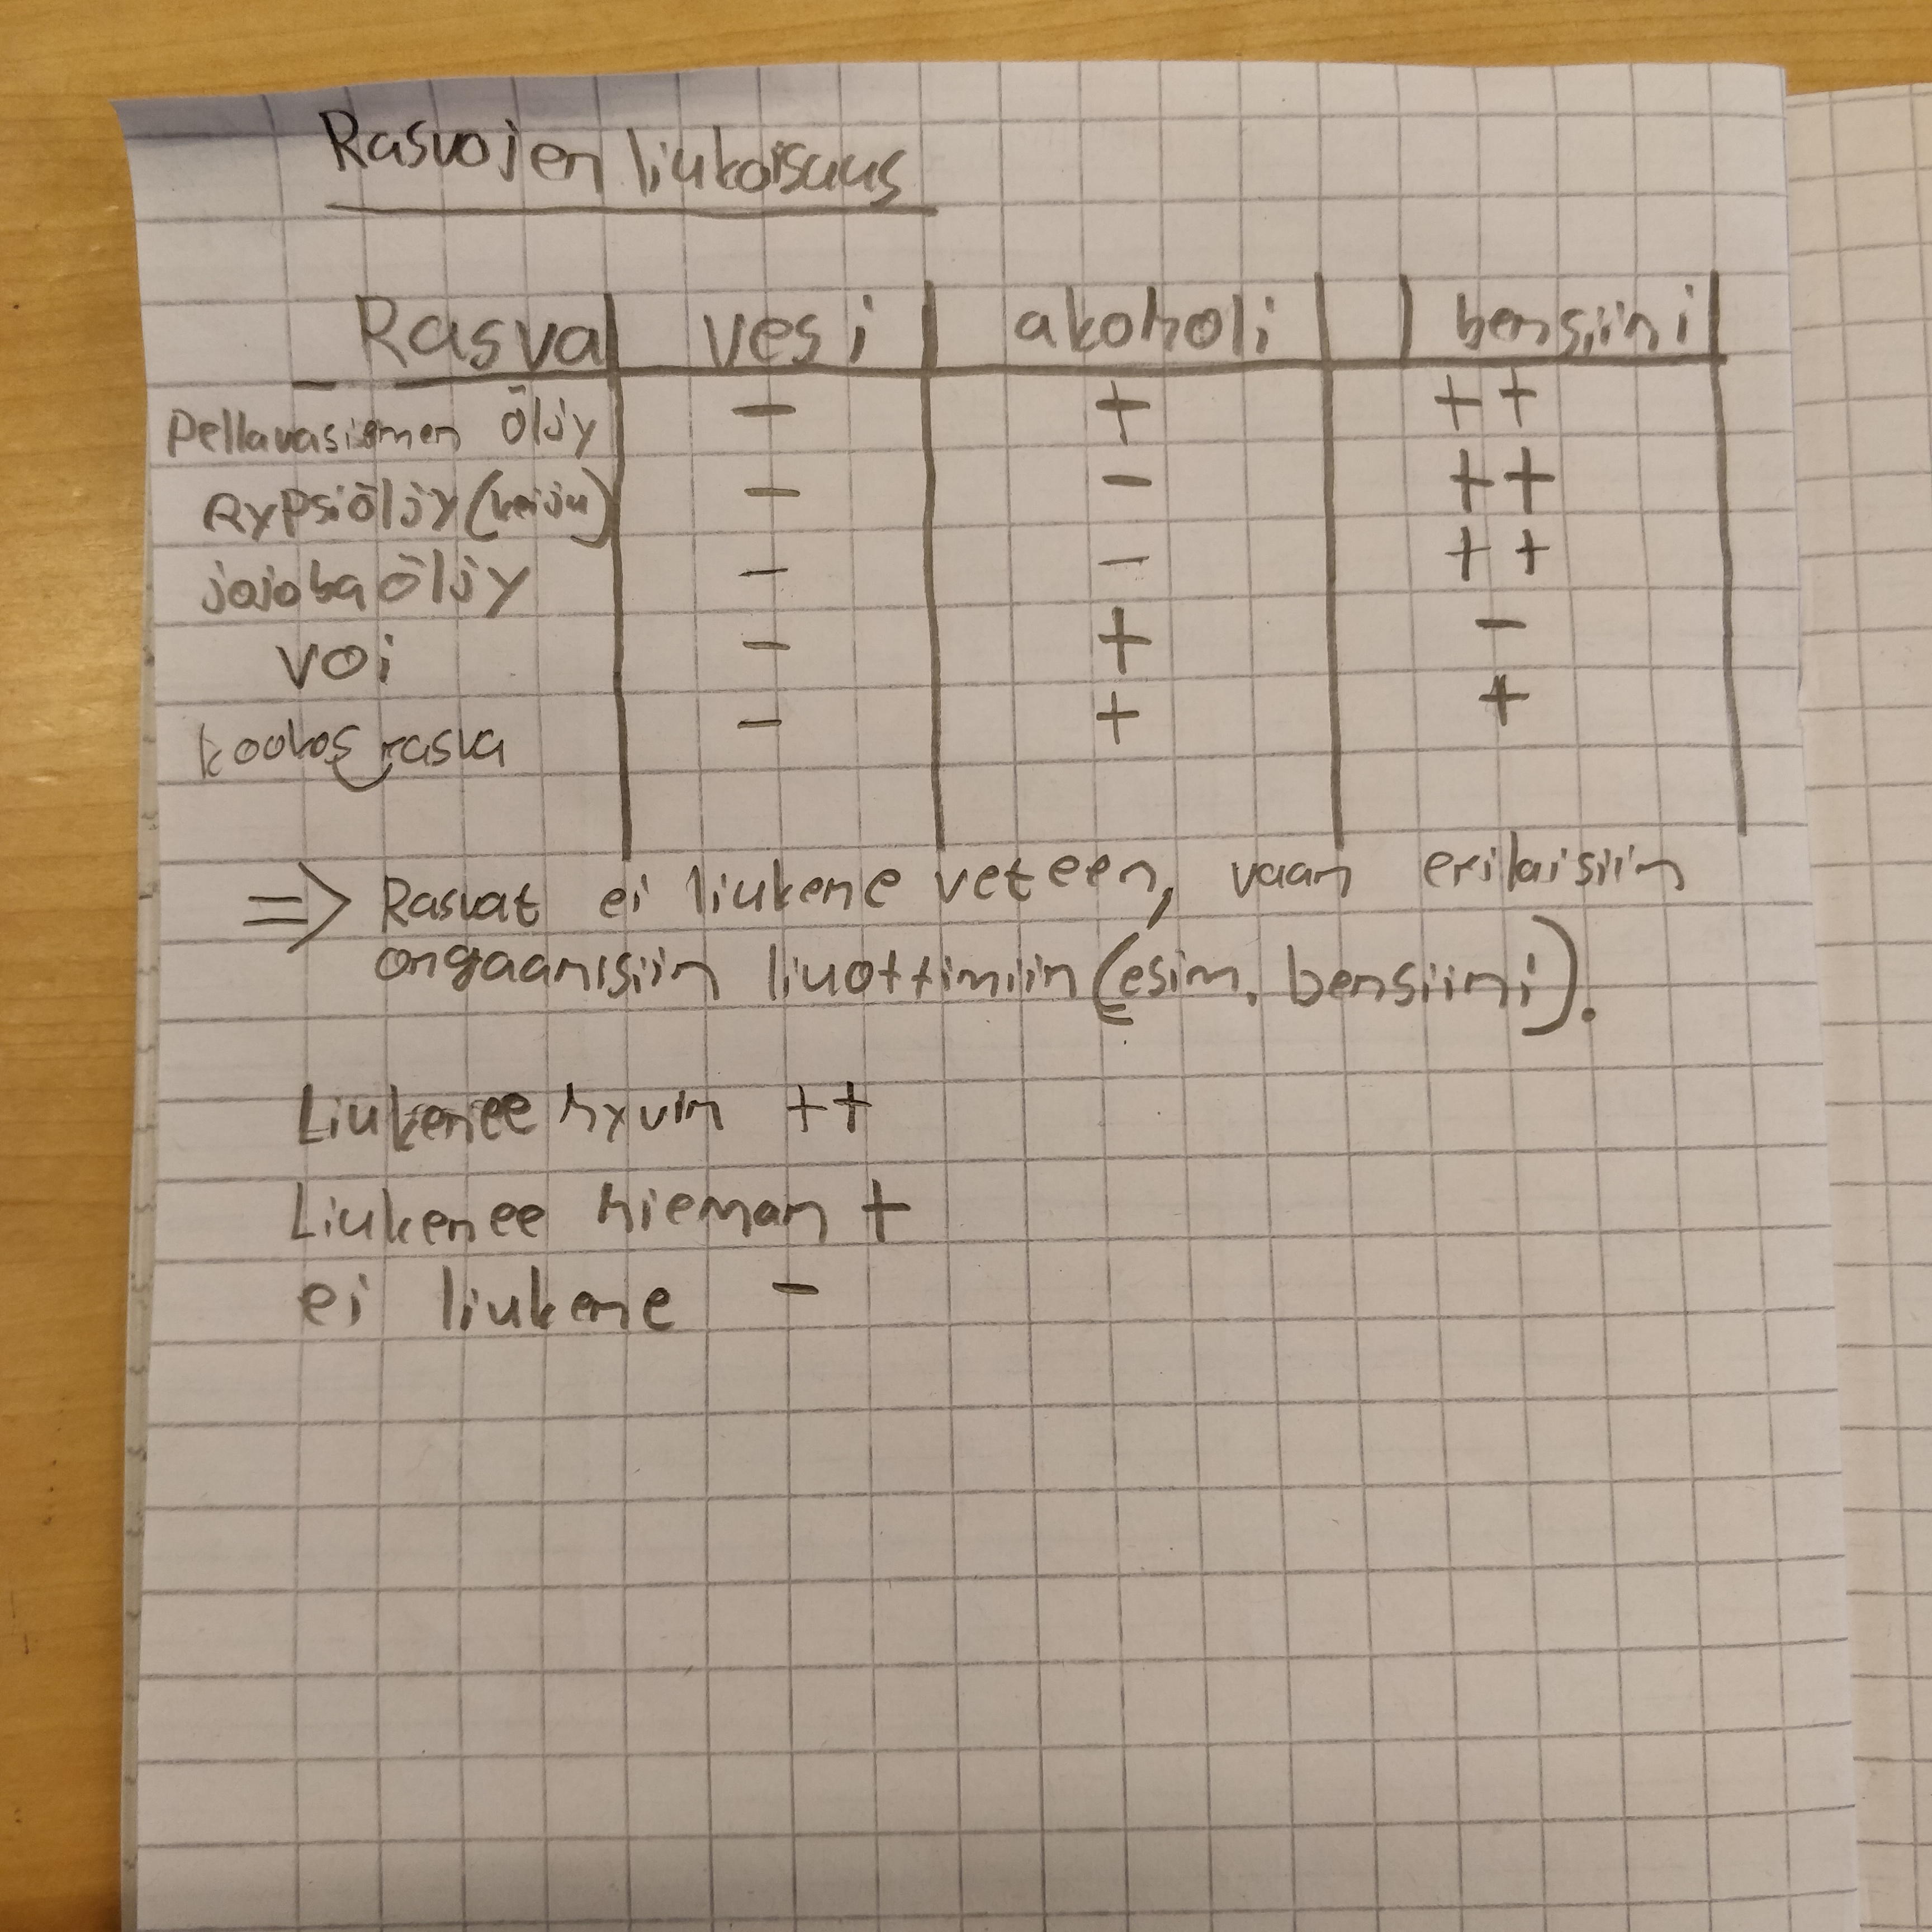 Rasvojen liukoisuus
Rasva vesi akoholi bensiini
Pellavasiemen öljy - + ++
Rypsiöljy (keiju) - - ++
jojoba öljy - - ++
voi - + -
kookos rasva - + +
=> Rasvat ei liukene veteen, vaan erilaisiin
orgaanisiin liuottimiin (esim. bensiini).
Liukenee hyvin ++
Liukenee hieman +
ei liukene -